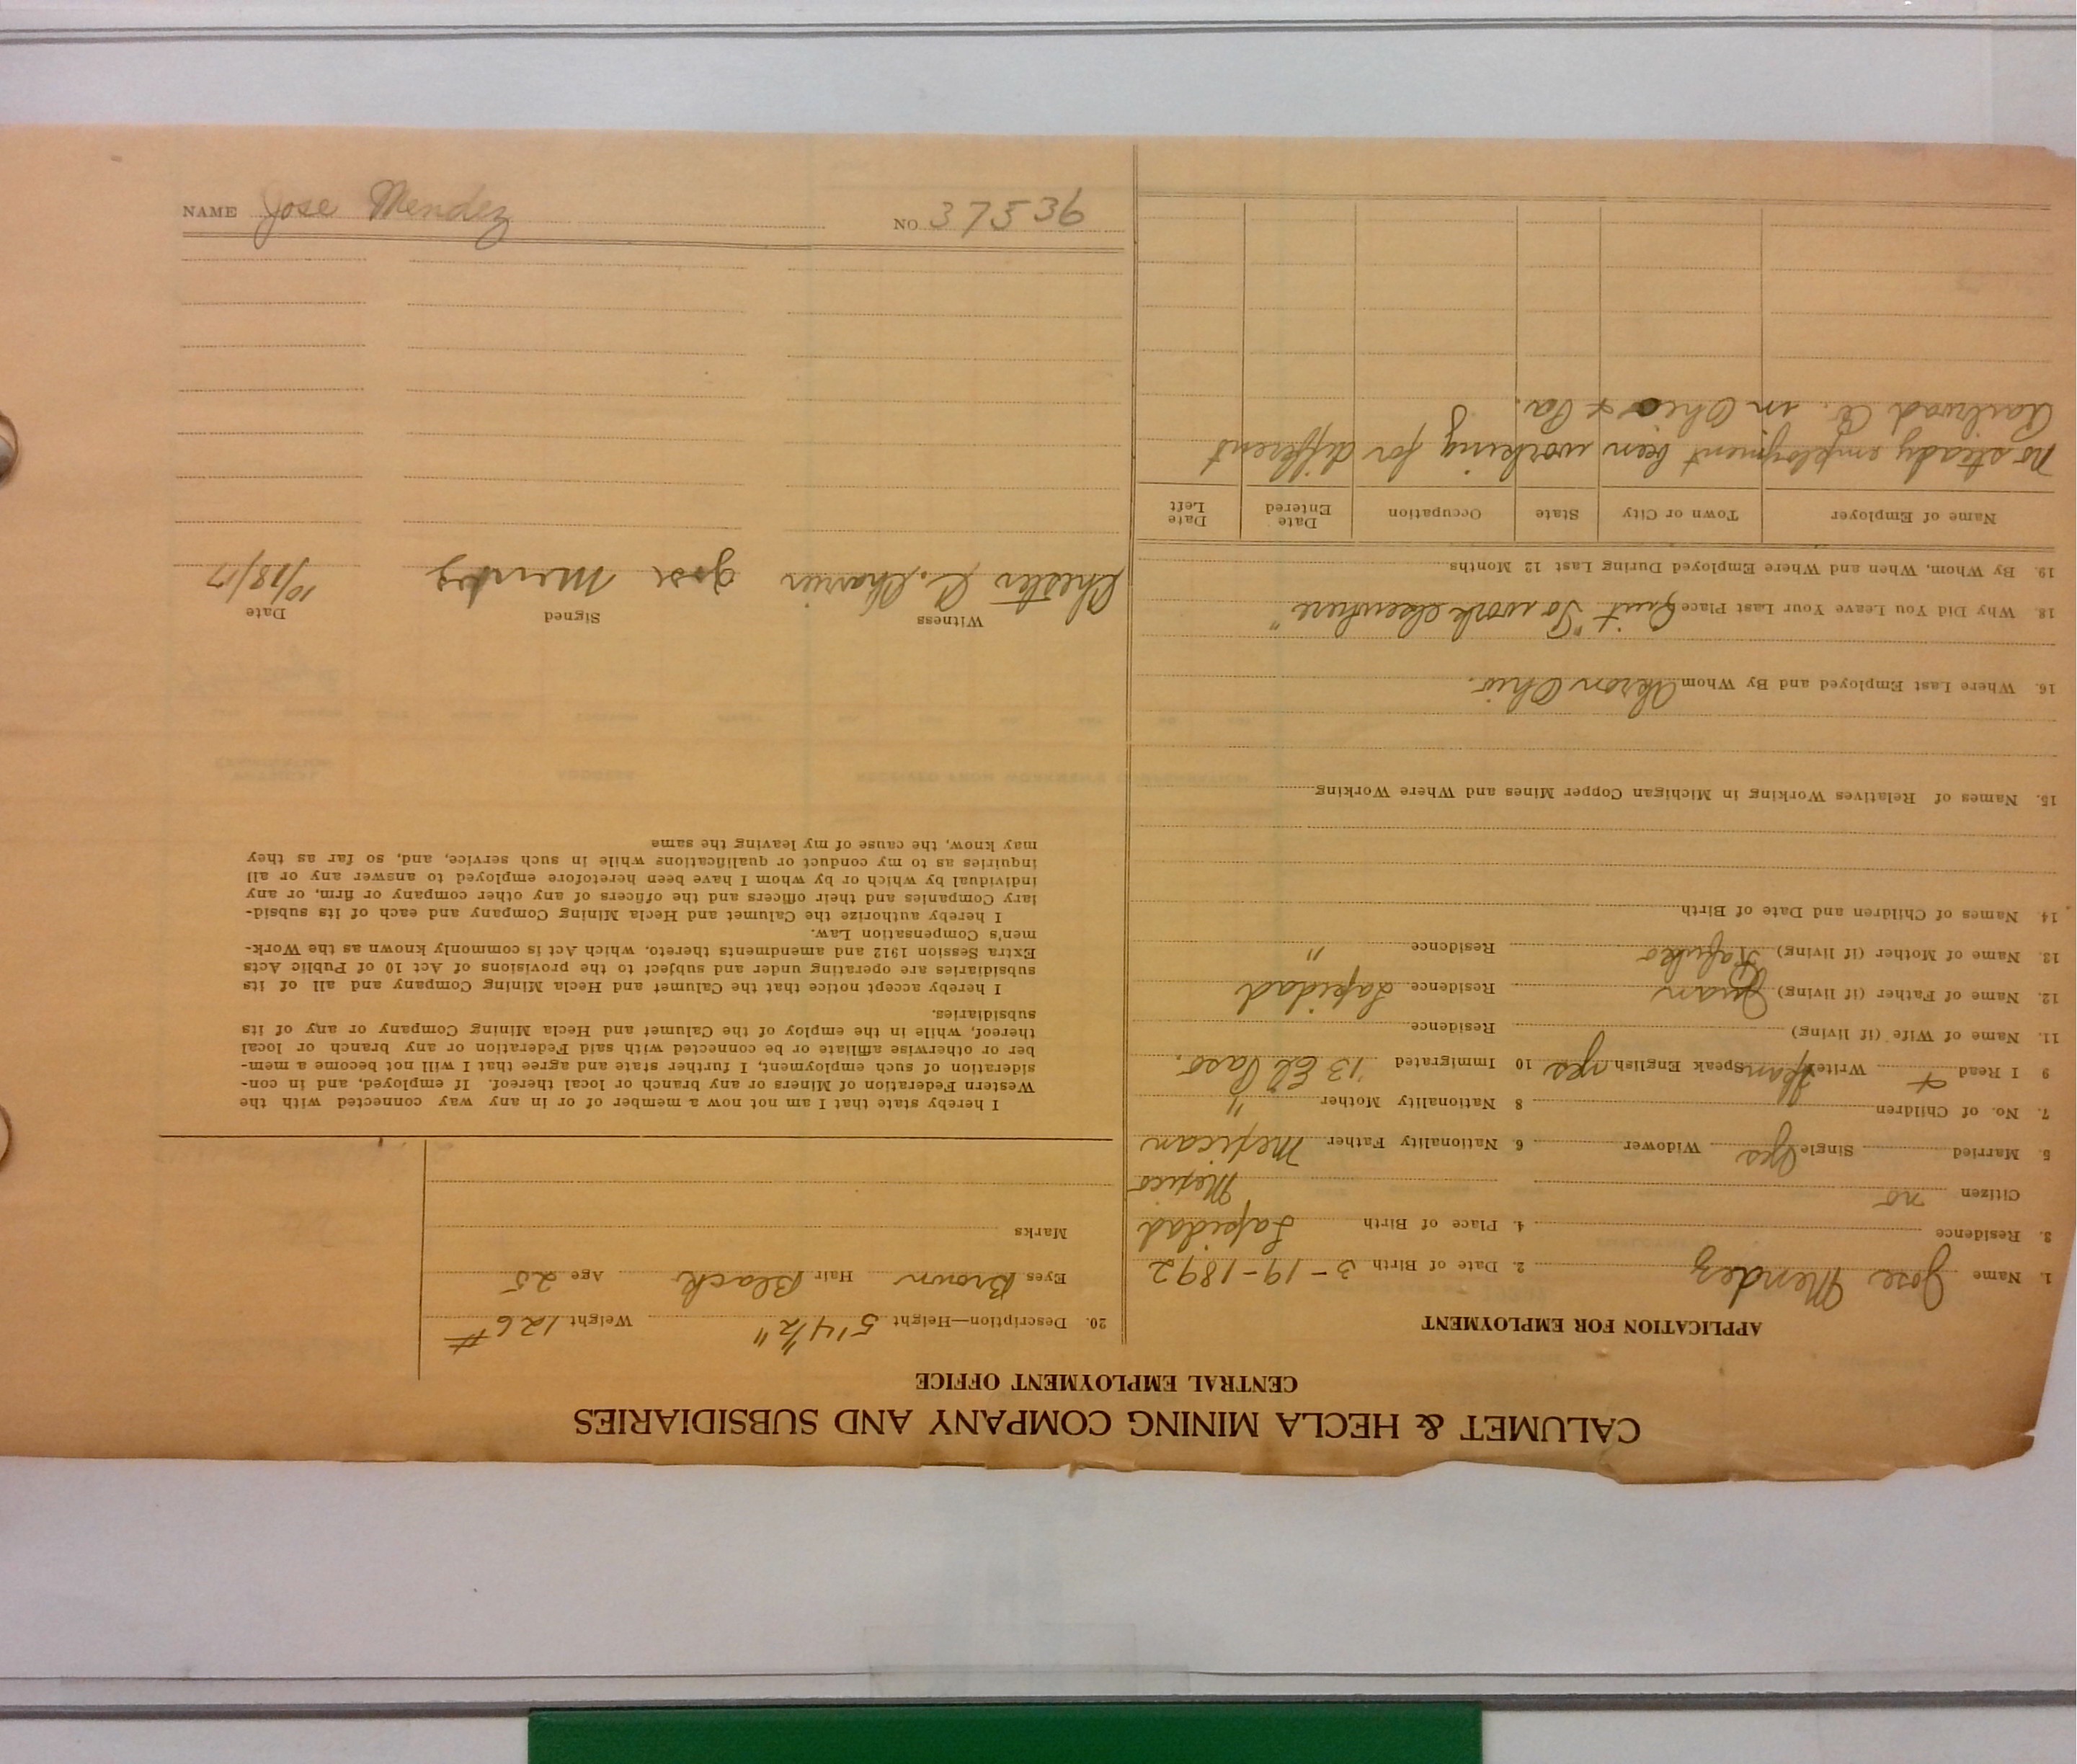 CALUMET & HECLA MINING COMPANY AND SUBSIDIARIES
CENTRAL EMPLOYMENT OFFICE
APPLICATION FOR EMPLOYMENT
1. Name Jose Mendez 2. Date of Birth 3-19-1892
3. Residence 4. Place of Birth Lapidad
Citizen no Mexico
5. Married Single Yes Widower 6 Nationality Father Mexican
7. No. of Children 8 Nationality Mother "
9 I Read + Write Span Speak English yes 10 Immigrated '13 El Paso.
11. Name of Wife (if living) Residence
12. Name of Father (if living) Juan Residence Lapidad
13. Name of Mother (if living) Residence "
14. Names of Children and Date of Birth
15. Names of Relatives Working in Michigan Copper Mines and Where Working
16. Where Last Employed and By Whom Akron Ohio.
18. Why Did You Leave Your Last Place Quit "To work elsewhere"
19. By Whom, When and Where Employed During Last 12 Months
Name of Employer Town or City State Occupation Date Entered Date Left
No steady employment been working for different
Railroad Co. in Ohio + Pa.
20. Description—Height 5'4½" Weight 126#
Eyes Brown Hair Black Age 25
Marks
I hereby state that I am not now a member of or in any way connected with the
Western Federation of Miners or any branch or local thereof. If employed, and in con-
sideration of such employment, I further state and agree that I will not become a mem-
ber or otherwise affiliate or be connected with said Federation or any branch or local
thereof, while in the employ of the Calumet and Hecla Mining Company or any of its
subsidiaries.
I hereby accept notice that the Calumet and Hecla Mining Company and all of its
subsidiaries are operating under and subject to the provisions of Act 10 of Public Acts
Extra Session 1912 and amendments thereto, which Act is commonly known as the Work-
men's Compensation Law.
I hereby authorize the Calumet and Hecla Mining Company and each of its subsid-
iary Companies and their officers and the officers of any other company or firm, or any
individual by which or by whom I have been heretofore employed to answer any or all
inquiries as to my conduct or qualifications while in such service, and, so far as they
may know, the cause of my leaving the same
Witness Signed Date
Chester C. Jose Mendez 10/18/17
NAME Jose Mendez NO. 37536